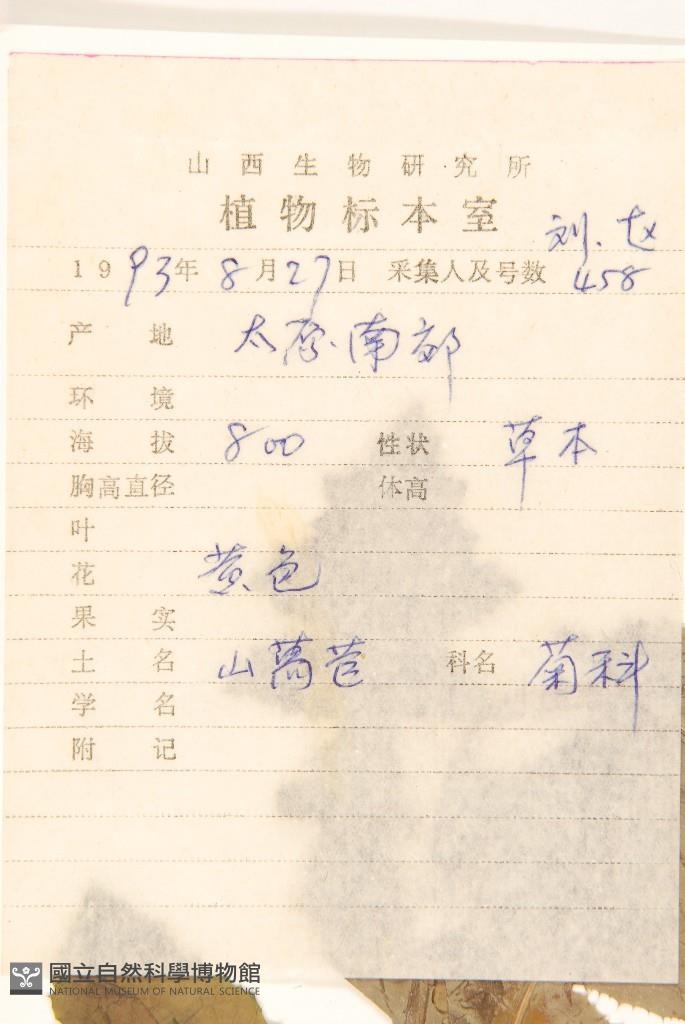 山西生物研究所
植物标本室
刘、赵
1993年8月27日 采集人及号数 458
产地 太原南部
环境
海拔 800 性状 草本
胸高直径 体高
叶
花 黄色
果实
土名 山萵苣 科名 菊科
学名
附记
國立自然科學博物館
NATIONAL MUSEUM OF NATURAL SCIENCE